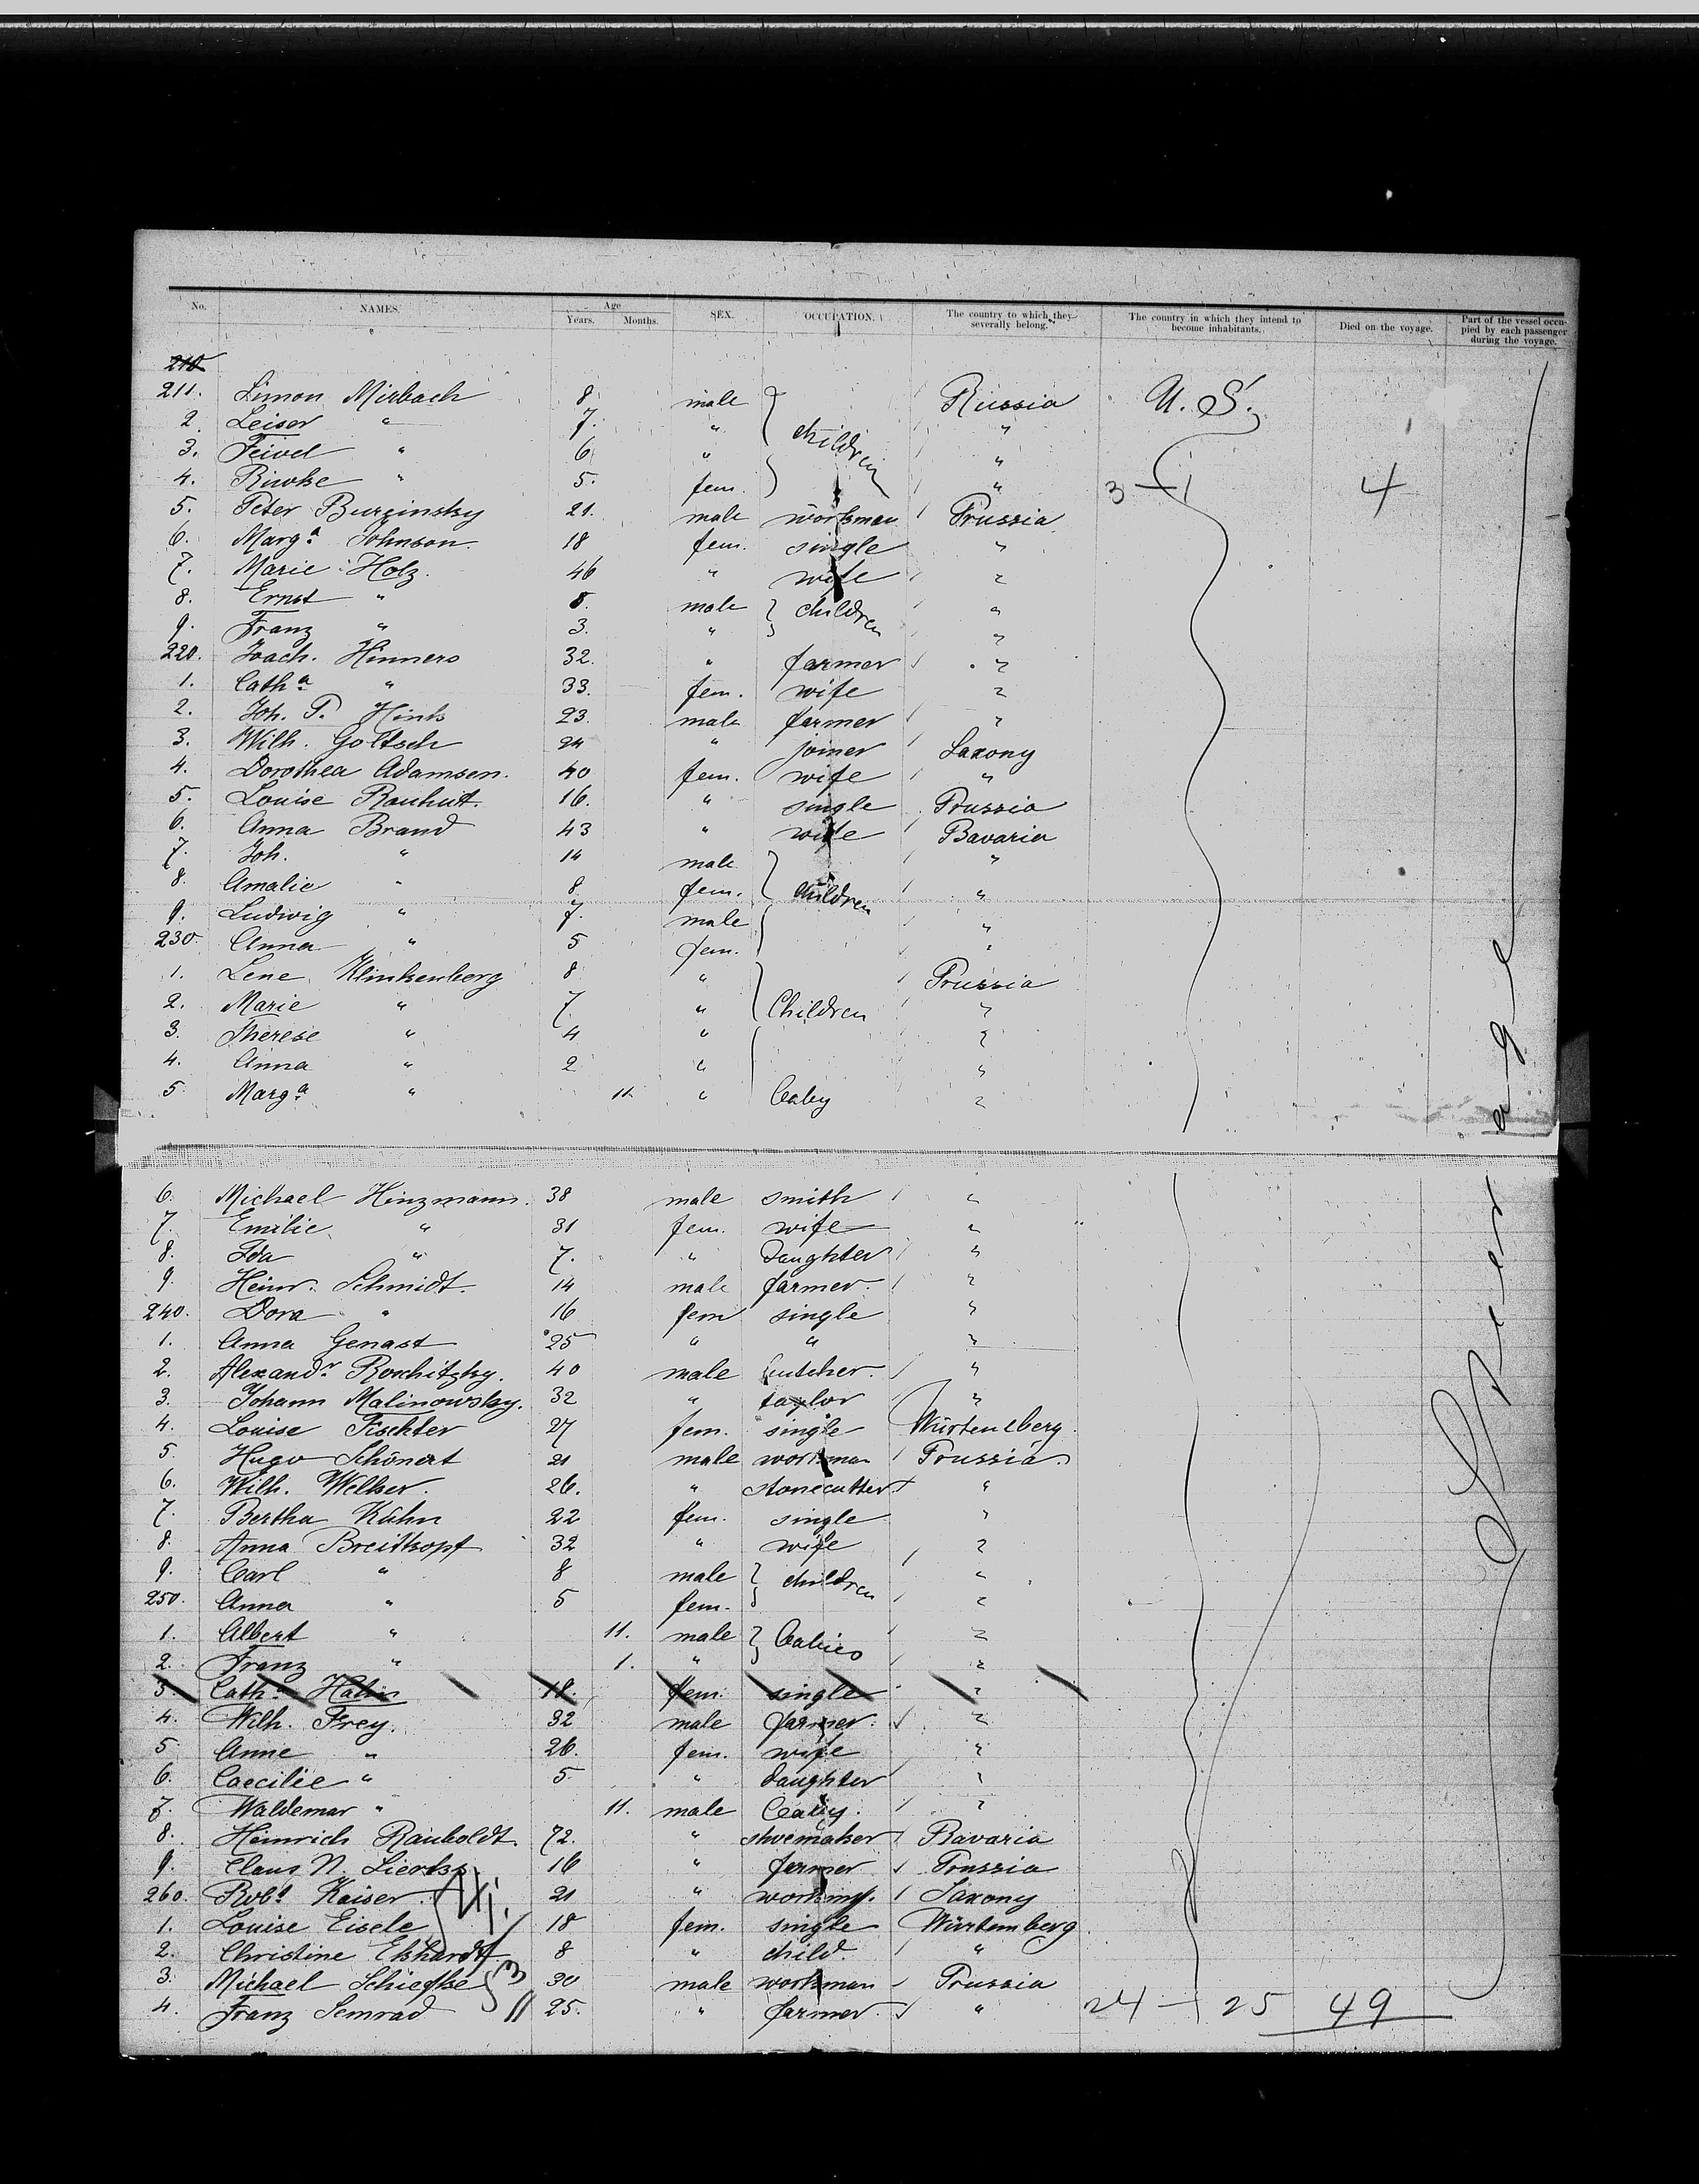 No. NAMES. Age SEX. OCCUPATION. The country to which they severally belong. The country in which they intend to become inhabitants. Died on the voyage. Part of the vessel occupied by each passenger during the voyage.
Years. Months.
210
211. Simon Mirbach 8 male children Russia U. S.
2. Leiser " 7. " "
3. Feivel " 6 " "
4. Riwke " 5. fem. " 3 — 1 4
5. Peter Burzinsky 21. male workman Prussia
6. Marga. Johnson. 18 fem. single "
7. Marie Holz. 46 " wife "
8. Ernst " 8. male children "
9. Franz " 3. " "
220. Joach. Hinners 32. " farmer "
1. Catha. " 33. fem. wife "
2. Joh. P. Hink 23. male farmer "
3. Wilh. Goltsch 24 " joiner Saxony
4. Dorothea Adamsen. 40 fem. wife "
5. Louise Rauhut. 16. " single Prussia
6. Anna Brand 43 " wife Bavaria
7. Joh. " 14 male children "
8. Amalie " 8 fem. "
9. Ludwig " 7. male "
230. Anna " 5 fem. "
1. Lene Klinkenberg 8 " Children Prussia
2. Marie " 7. " "
3. Therese " 4 " "
4. Anna " 2 " "
5. Marga. " 11. " Baby "
6. Michael Hinzmann. 38 male smith "
7. Emilie " 31 fem. wife "
8. Ida " 7. " Daughter "
9. Heinr. Schmidt. 14 male farmer. "
240. Dora " 16 fem single "
1. Anna Genast 25 " " "
2. Alexandr. 40 male butcher. "
3. Johann Malinowsky. 32 " taylor "
4. Louise Fischter 27 fem. single Würtemberg.
5. Hugo Schönert 21 male workman Prussia
6. Wilh. Welker. 26. " stonecutter "
7. Bertha Kühn 22 fem. single "
8. Anna Breitkopf 32 " wife "
9. Carl " 8 male children "
250. Anna " 5 fem. "
1. Albert " 11. male Babies "
2. Franz " 1. " "
3. Catha. Hahn 18. fem. single "
4. Wilh. Frey. 32 male farmer. "
5. Anne " 26. fem. wife "
6. Caecilie " 5. " daughter "
7. Waldemar " 11. male Baby. "
8. Heinrich Rauholdt. 72. " shoemaker Bavaria
9. Claus N. 16 " farmer Prussia
260. Robt. Kaiser. 21 " workmn. Saxony
1. Louise Eisele 18 fem. single Würtemberg
2. Christine Ekhardt 8 " child. "
3. Michael Schiefke 30 male workman Prussia
4. Franz Semrad 25. " farmer. " 24 — 25 49
Steerage